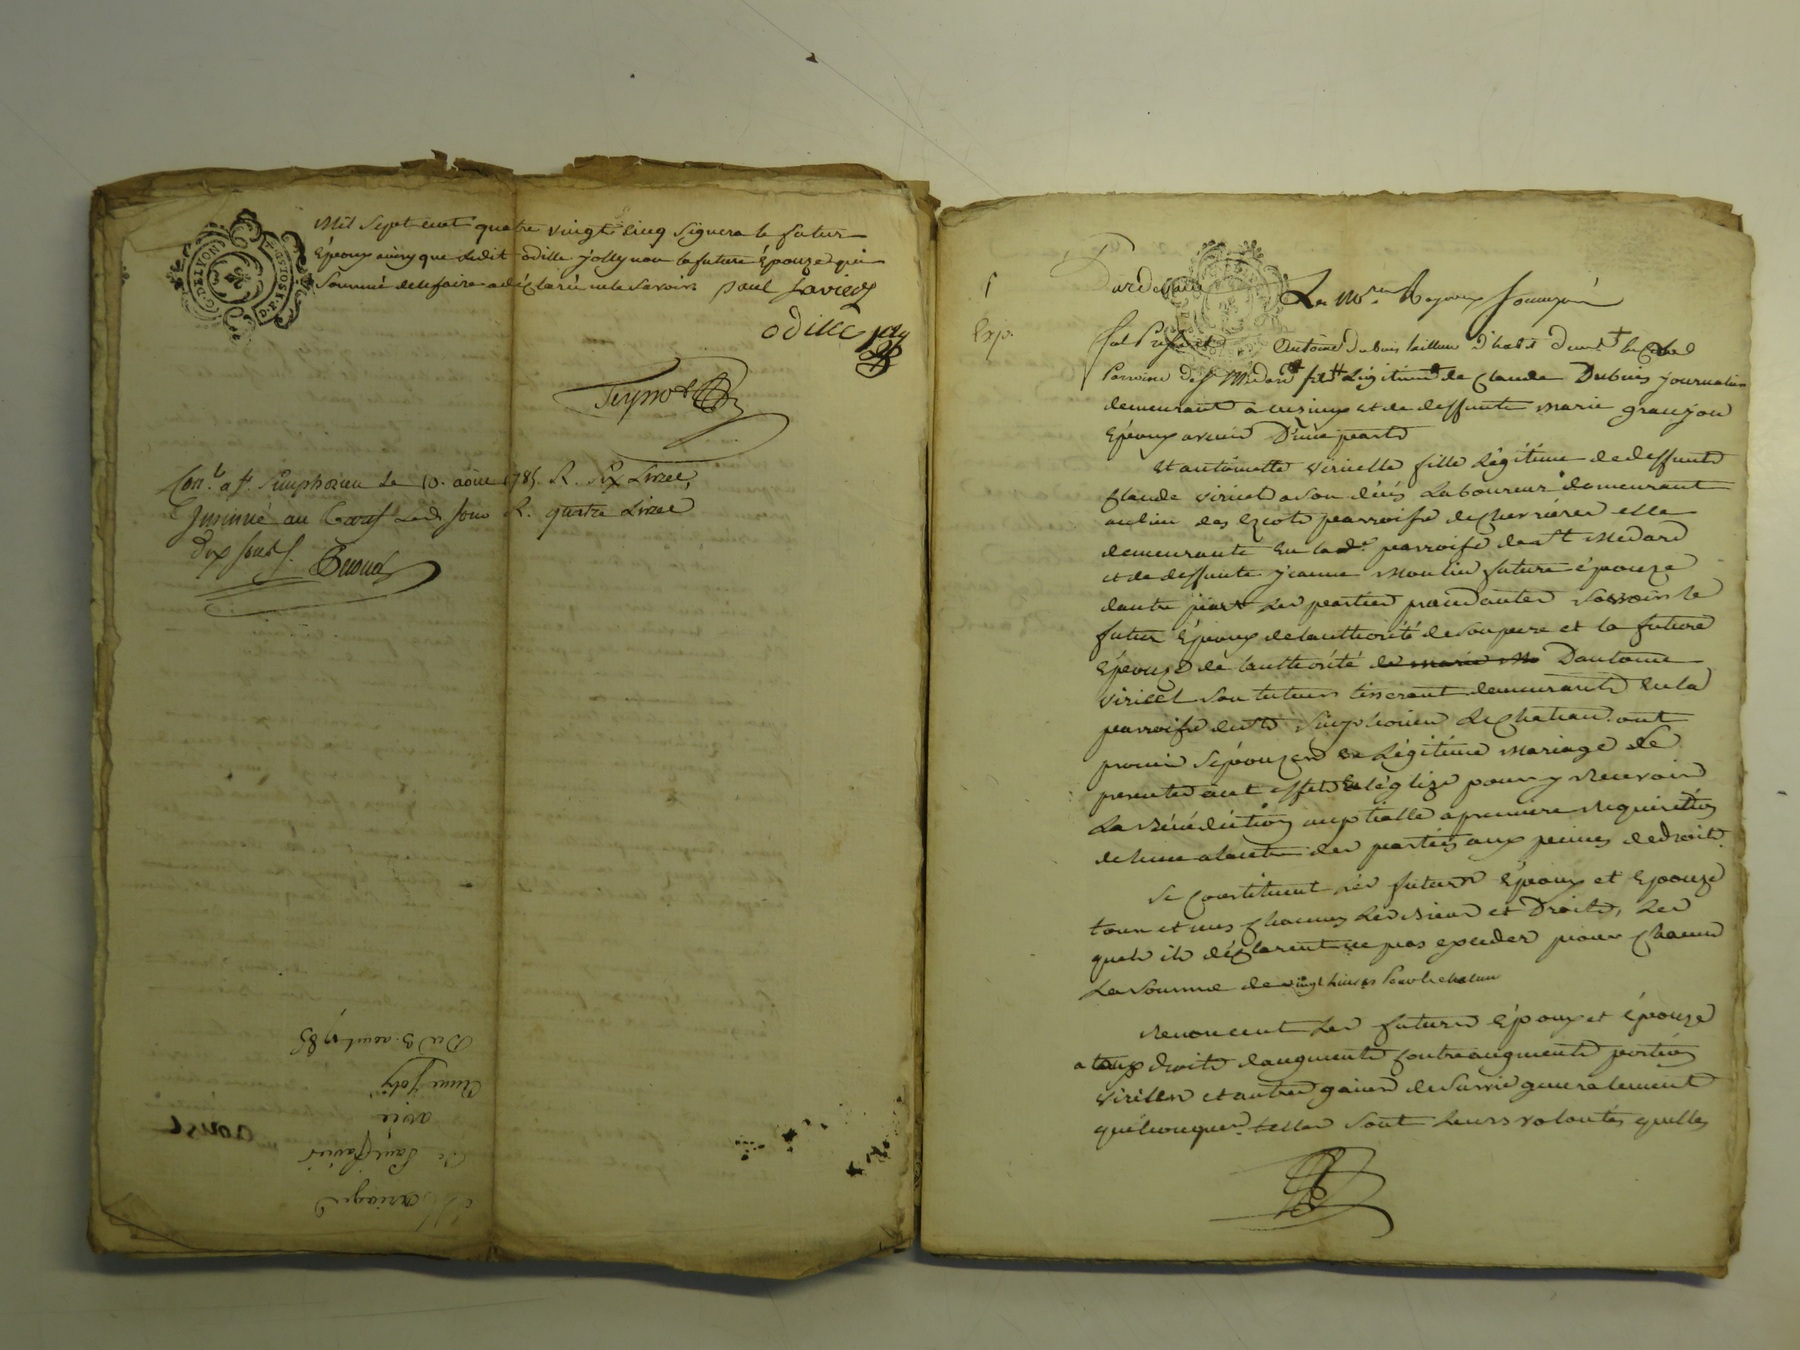 Mil sept cent quatre vingt cinq signera le futur
Epoux ainsy que ledit odille jolly non la future Epouze qui
sommé de le faire a déclarée ne le savoir. paul
odille joly
Con.lé a St. Simphorien le 10. aoüt 1785. R. six Livres,
Insinué au led. jour R. quatre Livres
dix sous
aoust
Mariage
de Paul
avec
Anne Joly
Du 3. aoust 1785
Pardevant Les No.res Royaux soussignés
fut Présent Antoine dubuis tailleur d'habit demt. au
Parroisse de St Medard fils Légitime de Claude Dubuis journalier
demeurant a et de deffunte marie granjon
Epoux avenir D'une part
et antoinette viricelle fille Légitime de deffunts
Claude viricel a son décés Laboureur demeurant
au lieu des parroisse de Chevrieres elle
demeurante en lad.e parroisse de St Medard
et de deffunte jeanne Moulin future épouze
dautre part Les parties procedantes savoir le
futur Epoux de lauthorité de son pere et la future
Epouze de lauthorité de marie M Dantoine
viricel son tuteur tisserant demeurants en la
parroisse de St Simphorien le Chateau ont
promis sépouzer en Légitime mariage se
presenter a cet effet en léglize pour y Recevoir
La Bénédiction nuptialle a premiere Requisition
de lune a lautre des parties aux peines de droit.
Se Constituent Les futurs Epoux et Epouze
tous et uns chacuns Les Biens et Droits, Les
quels ils déclarent ne pas exceder pour chacun
La somme de vingt livres
Renoncent Les futurs Epoux et Epouze
a tous droits daugments contreaugments portion
virilles et autres gains de survie generalement
quelconques. telles sont leurs volontés quelles